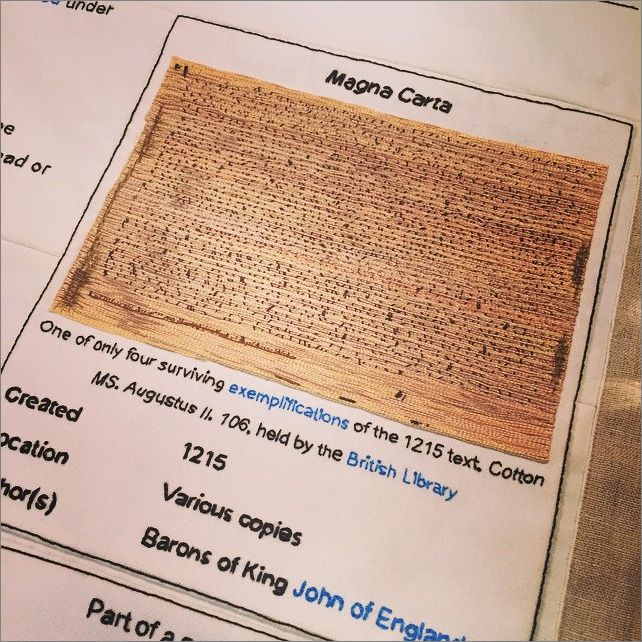 under
Magna Carta
ad or
One of only four surviving exemplifications of the 1215 text, Cotton
MS. Augustus II. 106, held by the British Library
Created 1215
ocation Various copies
hor(s) Barons of King John of England
Part of a